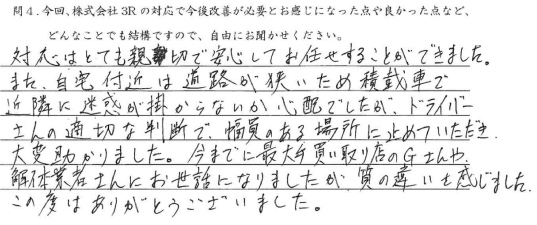 問4.今回、株式会社3Rの対応で今後改善が必要とお感じになった点や良かった点など、
どんなことでも結構ですので、自由にお聞かせください。
対応はとても親切で安心してお任せすることができました。
また、自宅付近は道路が狭いため積載車で
近隣に迷惑が掛からないか心配でしたが、ドライバー
さんの適切な判断で、幅員のある場所に止めていただき、
大変助かりました。今までに最大手買い取り店のGさんや、
解体業者さんにお世話になりましたが、質の違いを感じました。
この度はありがとうございました。